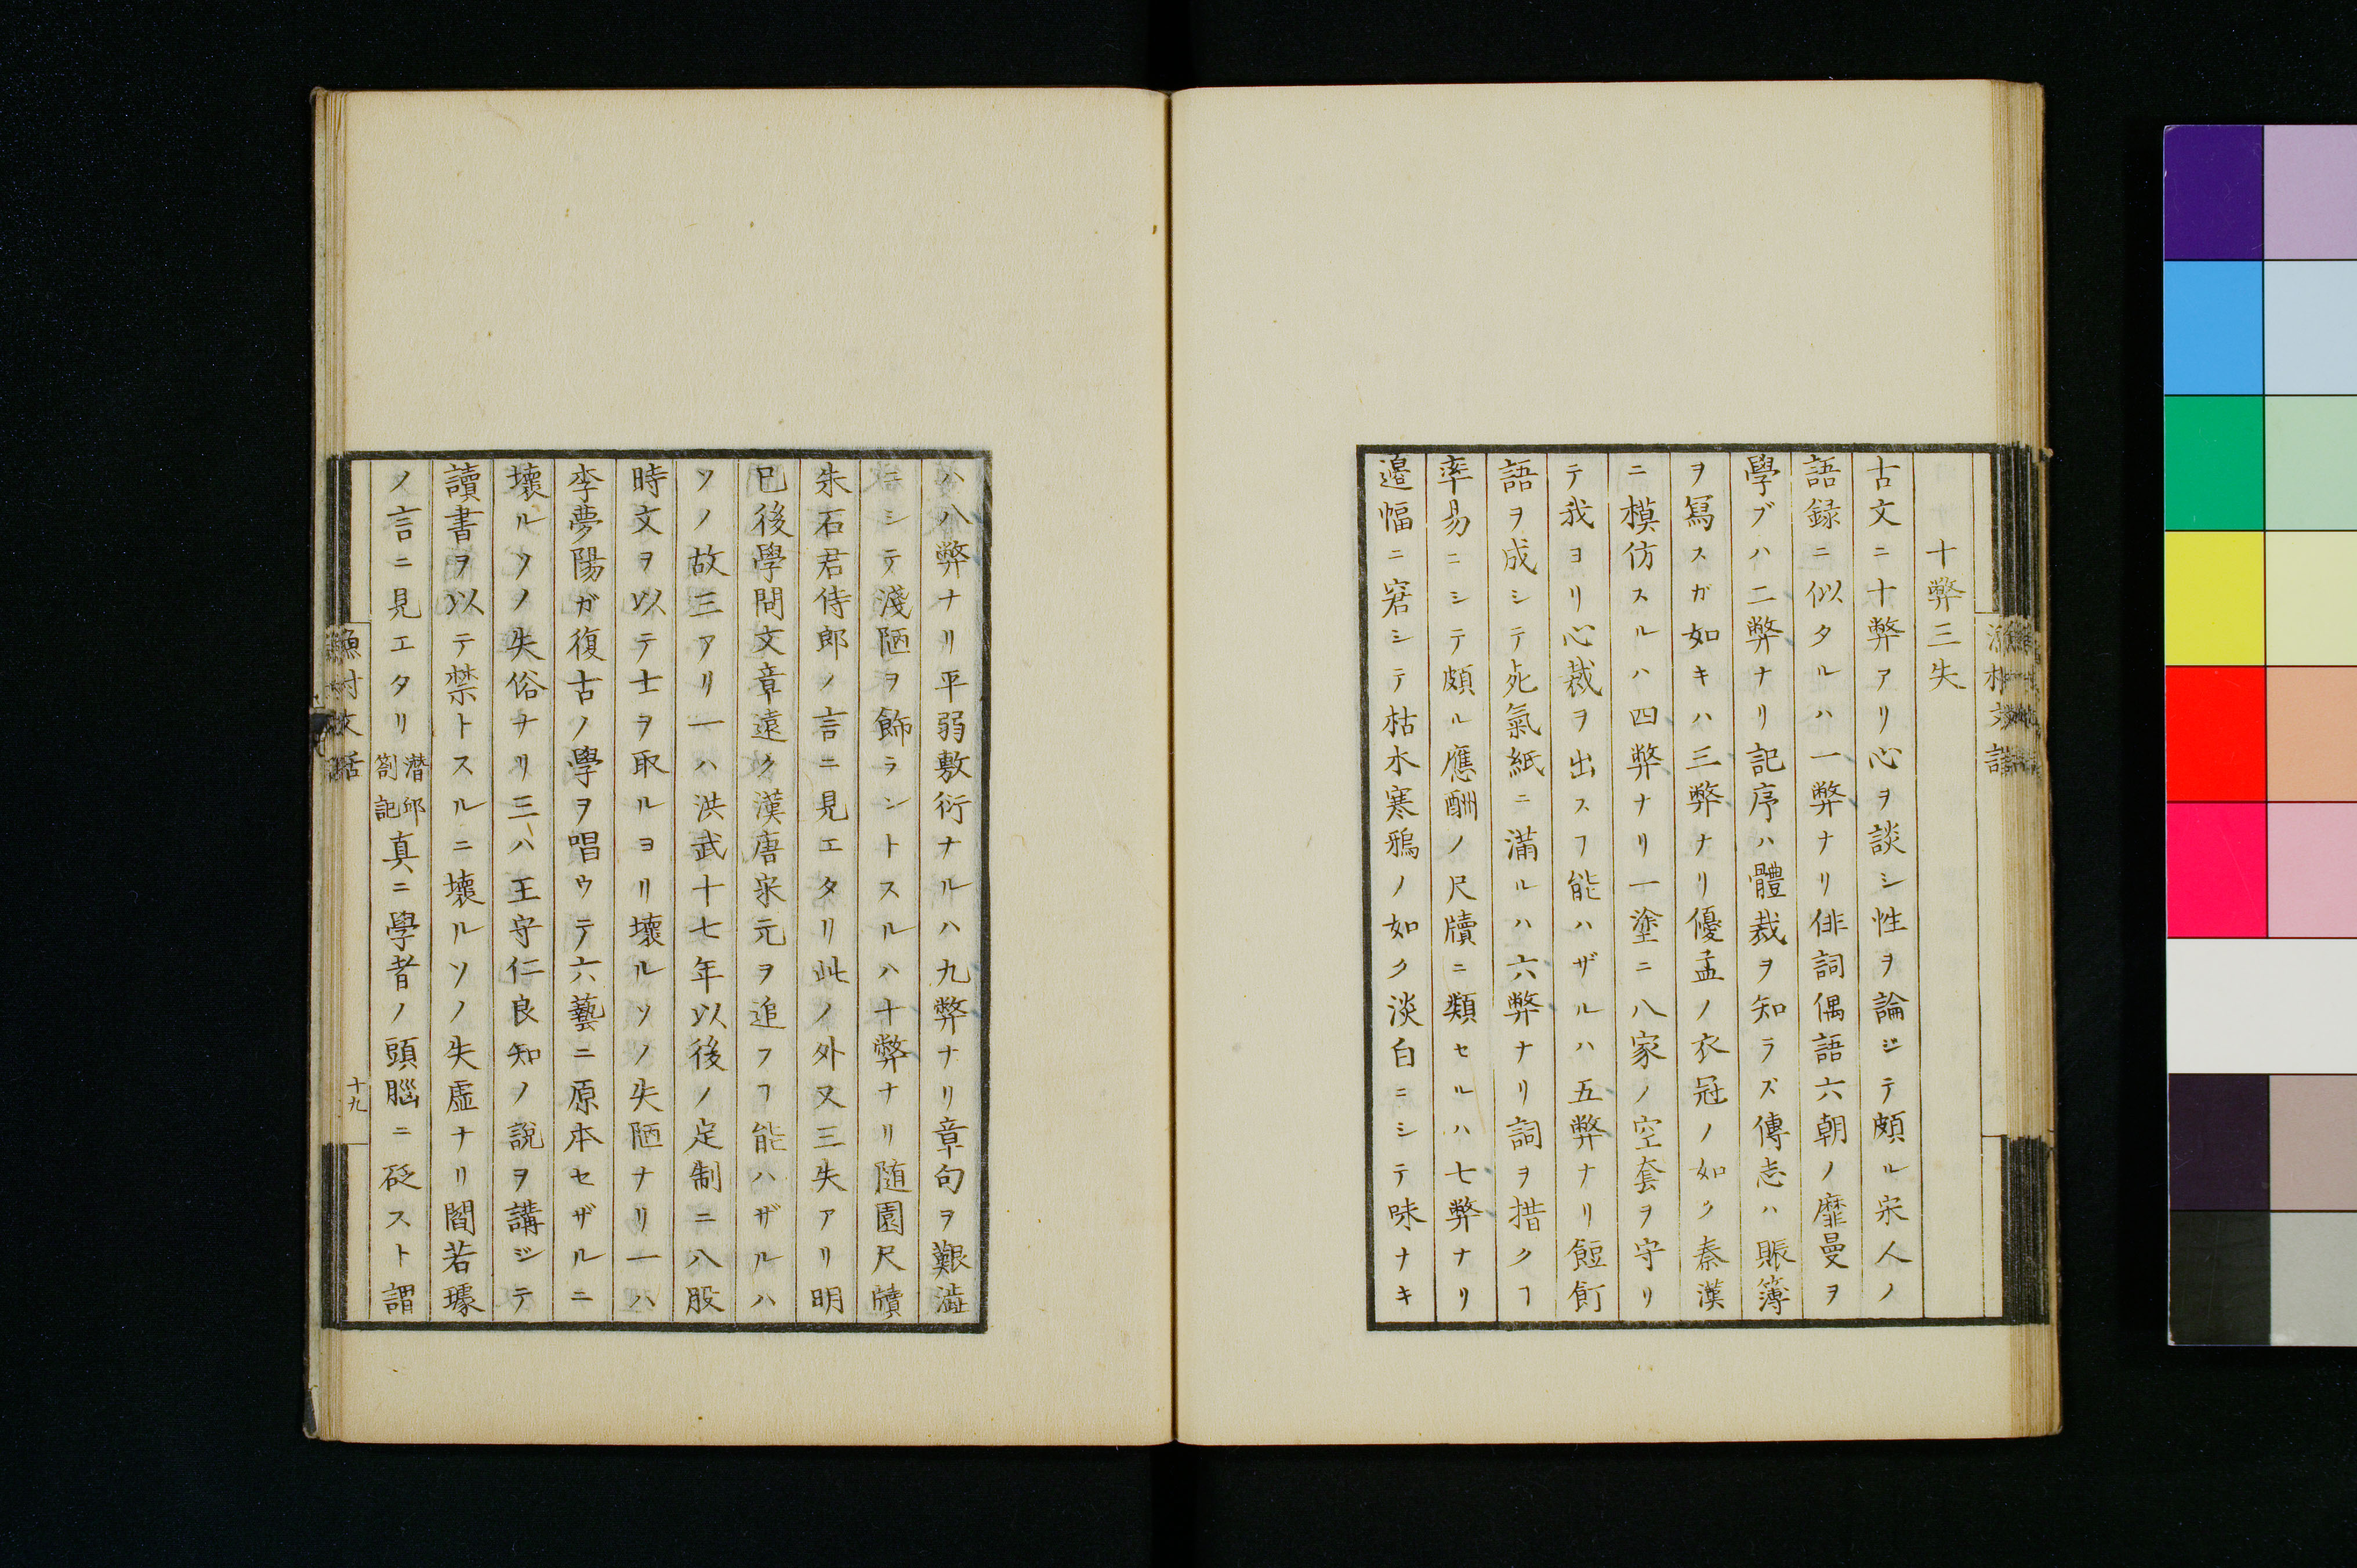 十弊三失
古文ニ十弊アリ心ヲ談シ性ヲ論ジテ頗ル宋人ノ
語録ニ似タルハ一弊ナリ俳詞偶語六朝ノ靡曼ヲ
學ブハ二弊ナリ記序ハ體裁ヲ知ラズ傳志ハ賬簿
ヲ寫スガ如キハ三弊ナリ優孟ノ衣冠ノ如ク秦漢
ニ模仿スルハ四弊ナリ一塗ニ八家ノ空套ヲ守リ
テ我ヨリ心裁ヲ出スヿ能ハザルハ五弊ナリ餖飣
語ヲ成シテ死氣紙ニ滿ルハ六弊ナリ詞ヲ措クヿ
率易ニシテ頗ル應酬ノ尺牘ニ類セルハ七弊ナリ
邉幅ニ窘シテ枯木寒鴉ノ如ク淡白ニシテ味ナキ
ハ八弊ナリ平弱敷衍ナルハ九弊ナリ章句ヲ艱澁
ニシテ淺陋ヲ飾ラントスルハ十弊ナリ随園尺牘
朱石君侍郎ノ言ニ見エタリ此ノ外又三失アリ明
已後學問文章遠ク漢唐宋元ヲ追フヿ能ハザルハ
ソノ故三アリ一ハ洪武十七年以後ノ定制ニ八股
時文ヲ以テ士ヲ取ルヨリ壞ルソノ失陋ナリ一ハ
李夢陽ガ復古ノ學ヲ唱ウテ六藝ニ原本セザルニ
壞ルソノ失俗ナリ三ハ王守仁良知ノ説ヲ講ジテ
讀書ヲ以テ禁トスルニ壞ルソノ失虚ナリ閻若璩
ノ言ニ見エタリ潛邱劄記真ニ學者ノ頭腦ニ砭スト謂
漁村文話
十九